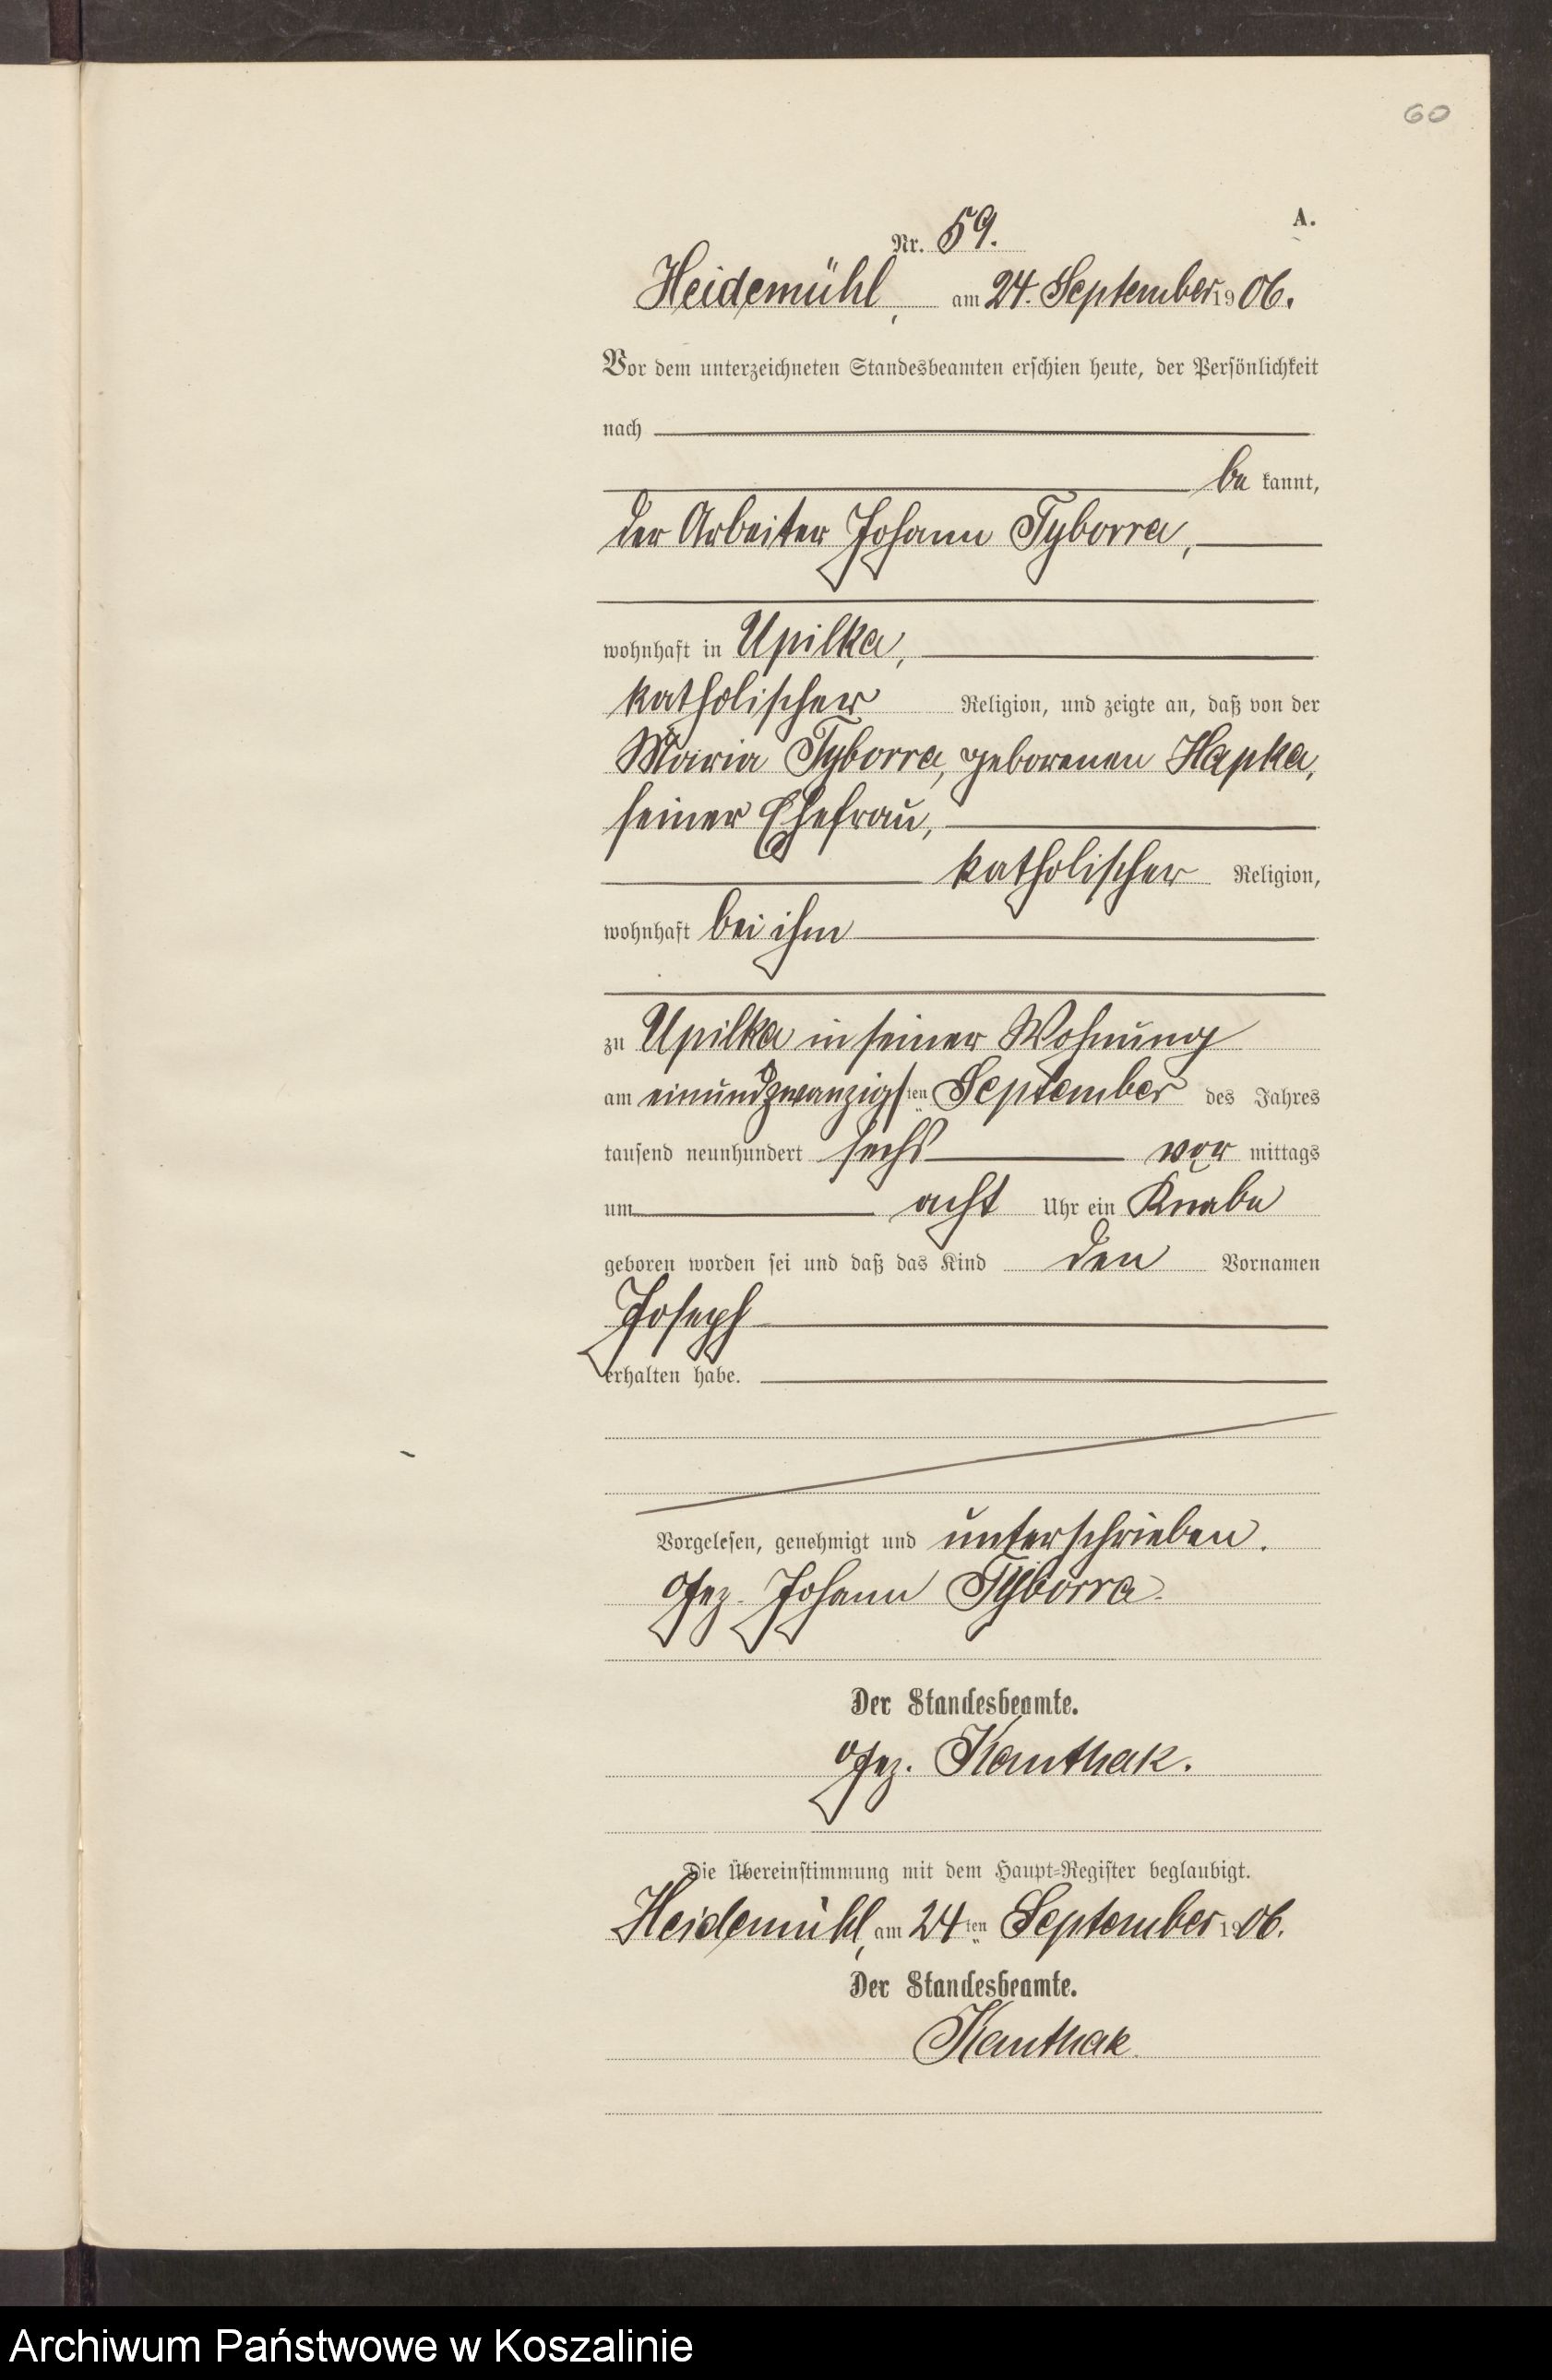 60
A.
Nr. 59.
Heidemühl, am 24. September 1906.
Vor dem unterzeichneten Standesbeamten erschien heute, der Persönlichkeit
nach
be kannt,
der Arbeiter Johann Tyborra,
wohnhaft in Upilka,
katholischer Religion, und zeigte an, daß von der
Maria Tyborra, geborenen Hapka,
seiner Ehefrau,
katholischer Religion,
wohnhaft bei ihm
zu Upilka in seiner Wohnung
am einundzwanzigsten September des Jahres
tausend neunhundert sechs vor mittags
um acht Uhr ein Knabe
geboren worden sei und daß das Kind den Vornamen
Joseph
erhalten habe.
Vorgelesen, genehmigt und unterschrieben.
gez. Johann Tyborra.
Der Standesbeamte.
gez. Kanthak.
Die Übereinstimmung mit dem Haupt-Register beglaubigt.
Heidemühl, am 24ten September 1906.
Der Standesbeamte.
Kanthak.
Archiwum Państwowe w Koszalinie